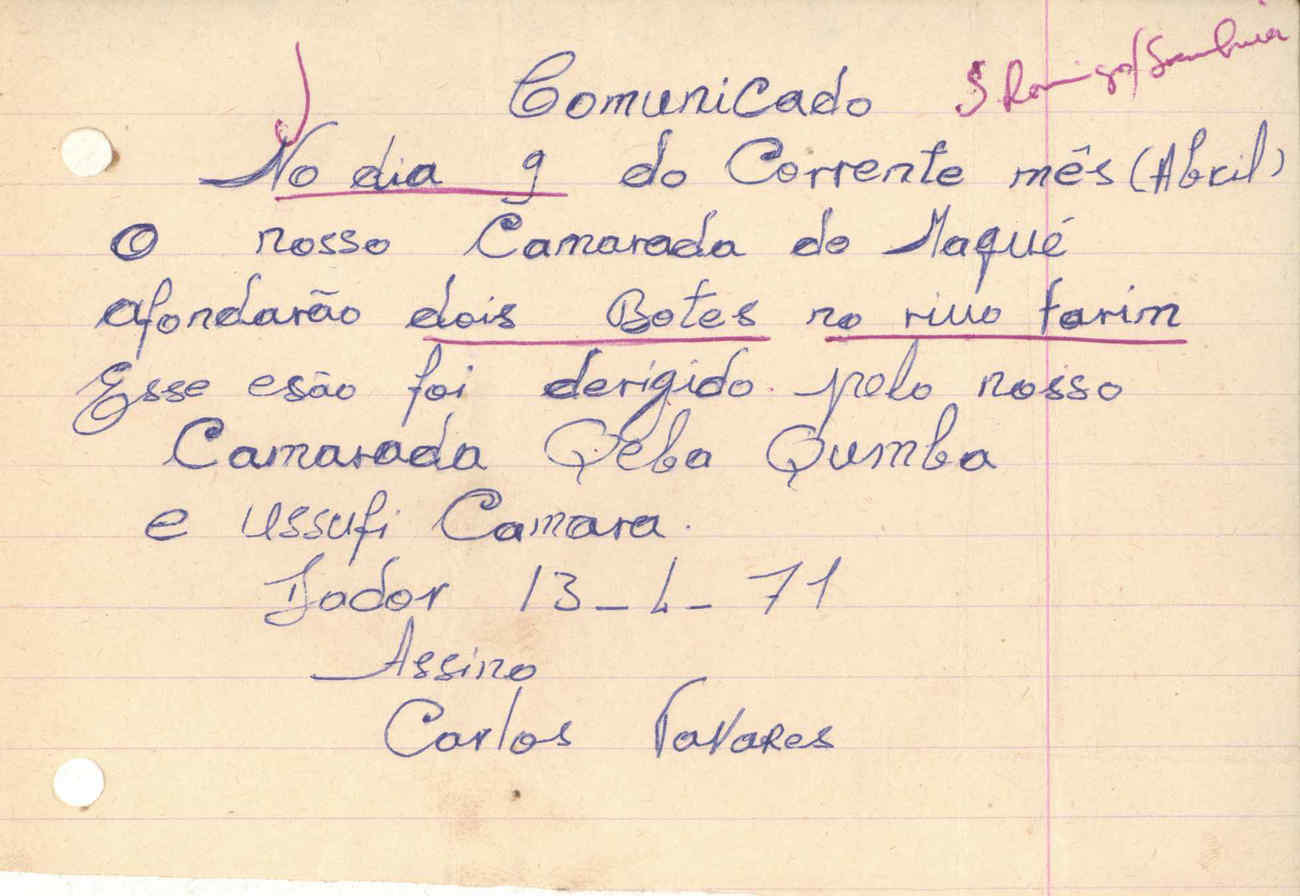 Comunicado
S. Domingos/Sambuia
No dia 9 do Corrente mês (Abril)
O nosso Camarada do Maqué
afondarão dois Botes no rivo farim
Esse esão foi derigido pelo nosso
Camarada Qeba Qumba
e Ussufi Camara.
Djador 13_4_71
Assino
Carlos Tavares